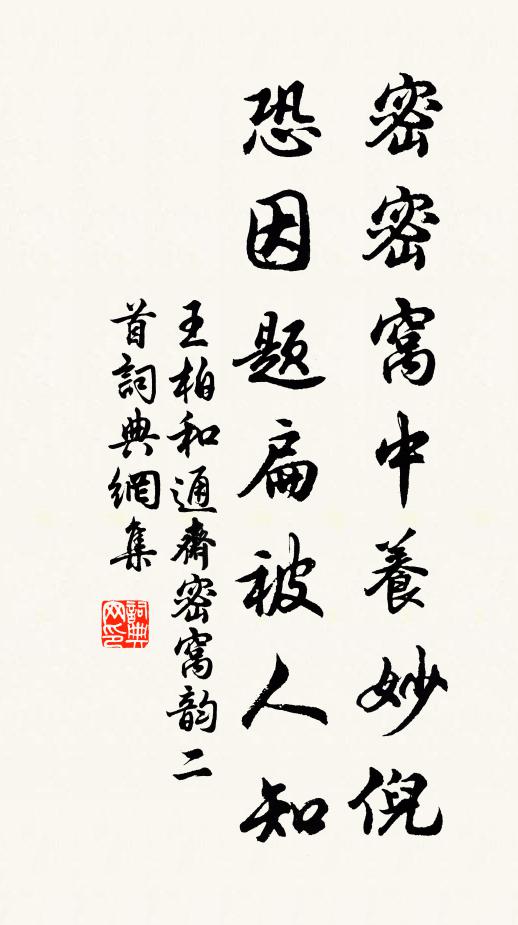 密密窩中養妙倪
恐因題扁被人知
王柏和通齋密窩韵二
首詞典網集
詞典
网印